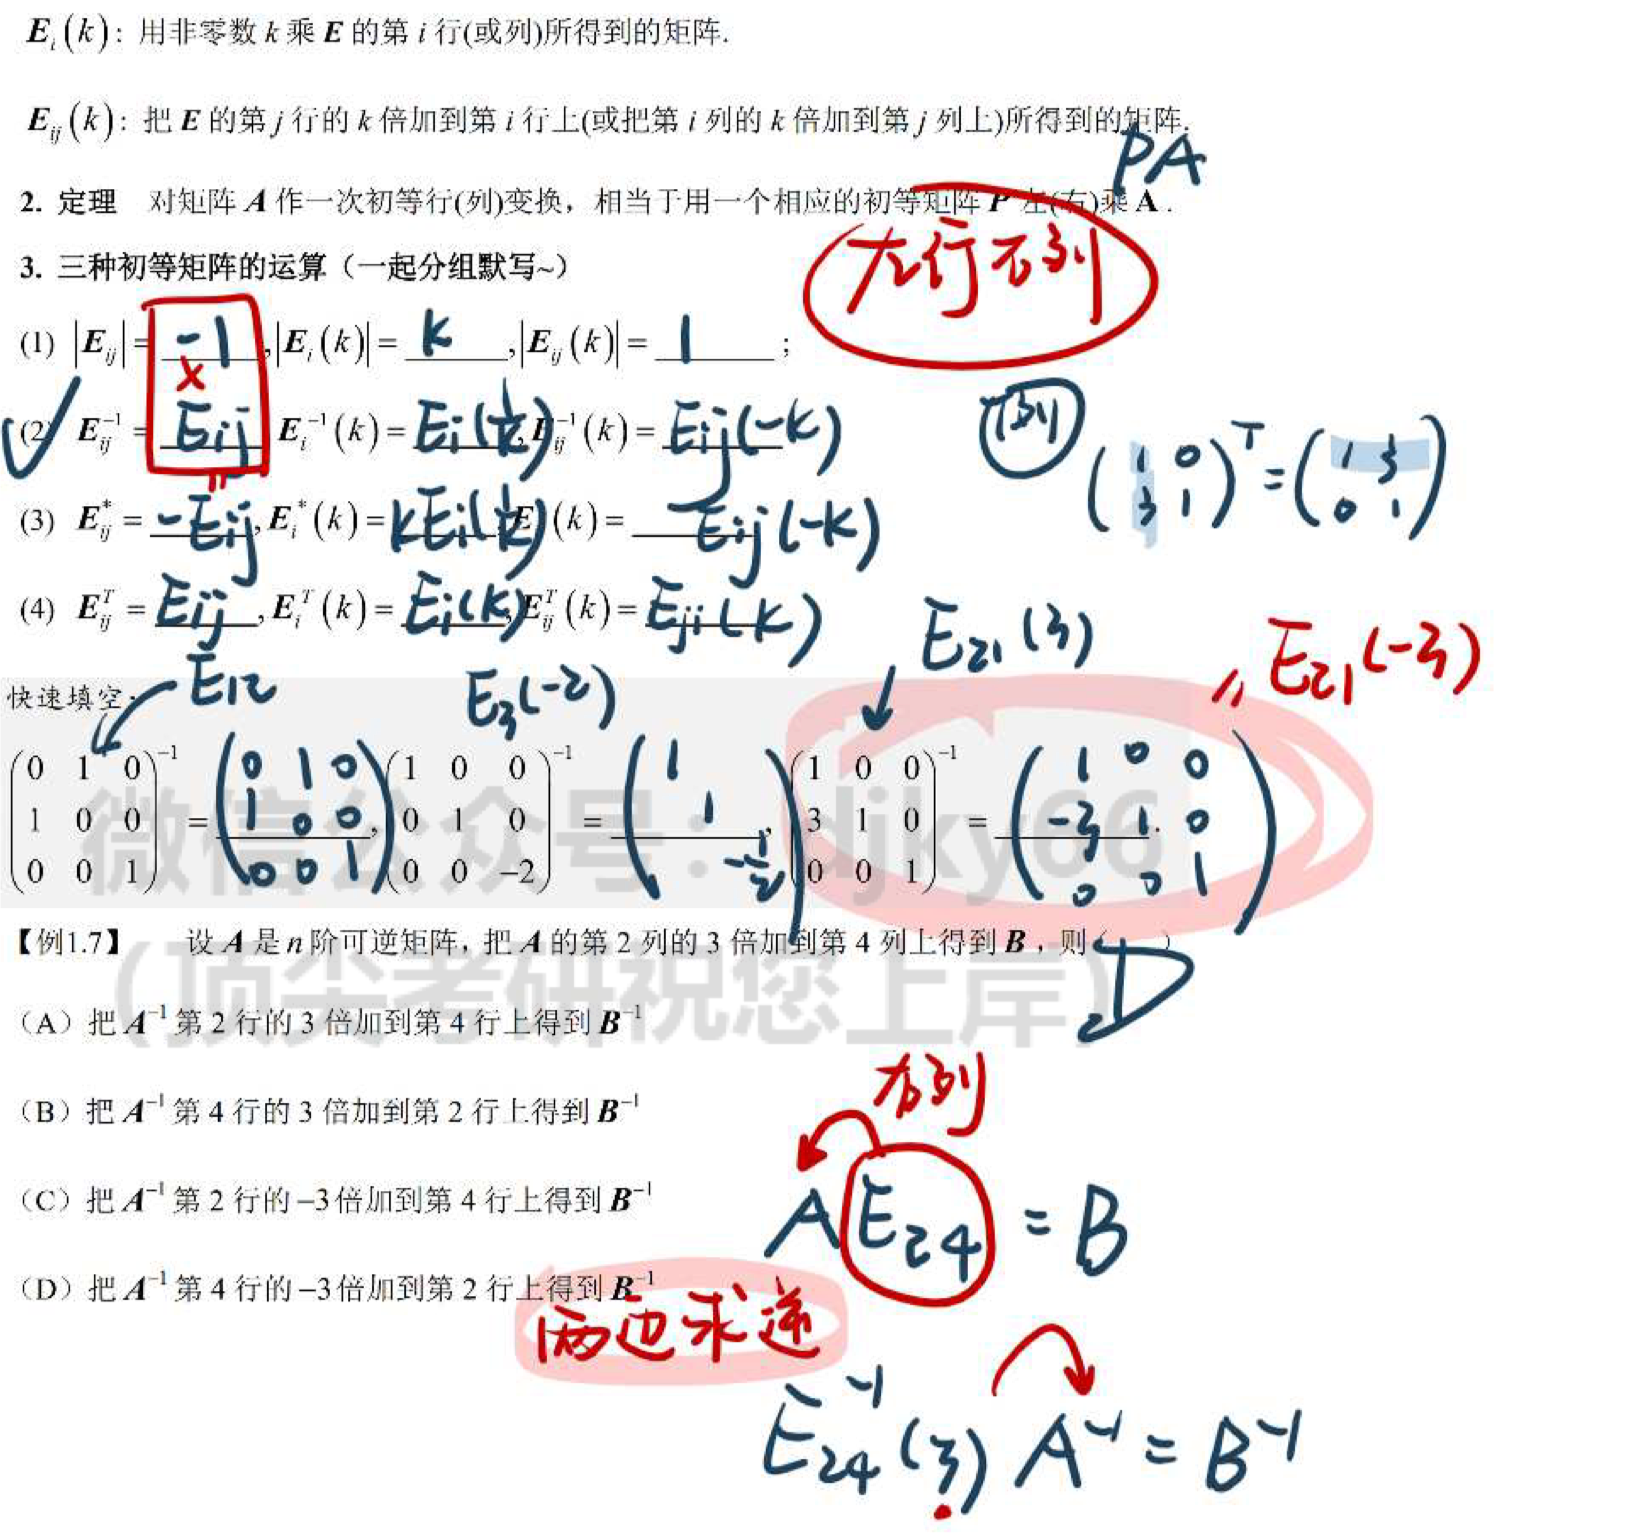 E_i(k): 用非零数 k 乘 E 的第 i 行(或列)所得到的矩阵.
E_ij(k): 把 E 的第 j 行的 k 倍加到第 i 行上(或把第 i 列的 k 倍加到第 j 列上)所得到的矩阵.
PA
2. 定理 对矩阵 A 作一次初等行(列)变换，相当于用一个相应的初等矩阵 P 左(右)乘 A .
左行右列
3. 三种初等矩阵的运算（一起分组默写~）
(1) |E_ij| = -1 , |E_i(k)| = k , |E_ij(k)| = 1 ;
×
(2) E_ij^{-1} = E_ij E_i^{-1}(k) = E_i(1/k), E_ij^{-1}(k) = E_ij(-k)
例 (1 0; 3 1)^T = (1 3; 0 1)
(3) E_ij^* = -E_ij, E_i^*(k) = kE_i(1/k) E (k) = E_ij(-k)
(4) E_ij^T = E_ij , E_i^T(k) = E_i(k), E_ij^T(k) = E_ji(k)
E_12 E_3(-2) E_21(3) E_21(-3)
快速填空:
(0 1 0; 1 0 0; 0 0 1)^{-1} = (0 1 0; 1 0 0; 0 0 1), (1 0 0; 0 1 0; 0 0 -2)^{-1} = (1; 1; -1/2), (1 0 0; 3 1 0; 0 0 1)^{-1} = (1 0 0; -3 1 0; 0 0 1).
微信公众号: djky66
【例1.7】 设 A 是 n 阶可逆矩阵，把 A 的第 2 列的 3 倍加到第 4 列上得到 B，则( D )
(顶尖考研祝您上岸)
（A）把 A^{-1} 第 2 行的 3 倍加到第 4 行上得到 B^{-1}
（B）把 A^{-1} 第 4 行的 3 倍加到第 2 行上得到 B^{-1}
右列
（C）把 A^{-1} 第 2 行的 −3 倍加到第 4 行上得到 B^{-1}
A E_24 = B
（D）把 A^{-1} 第 4 行的 −3 倍加到第 2 行上得到 B^{-1}
两边求逆
E_24^{-1}(3) A^{-1} = B^{-1}